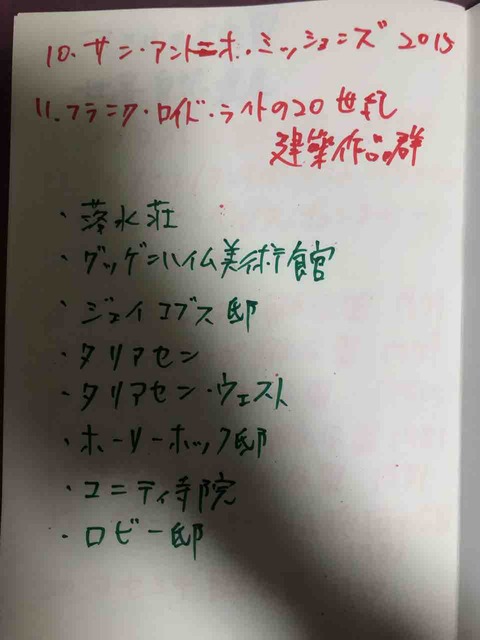 10. サン・アントニオ・ミッションズ 2015
11. フランク・ロイド・ライトの20世紀
建築作品群
・落水荘
・グッゲンハイム美術館
・ジェイコブス邸
・タリアセン
・タリアセン・ウェスト
・ホーリーホック邸
・ユニティ寺院
・ロビー邸